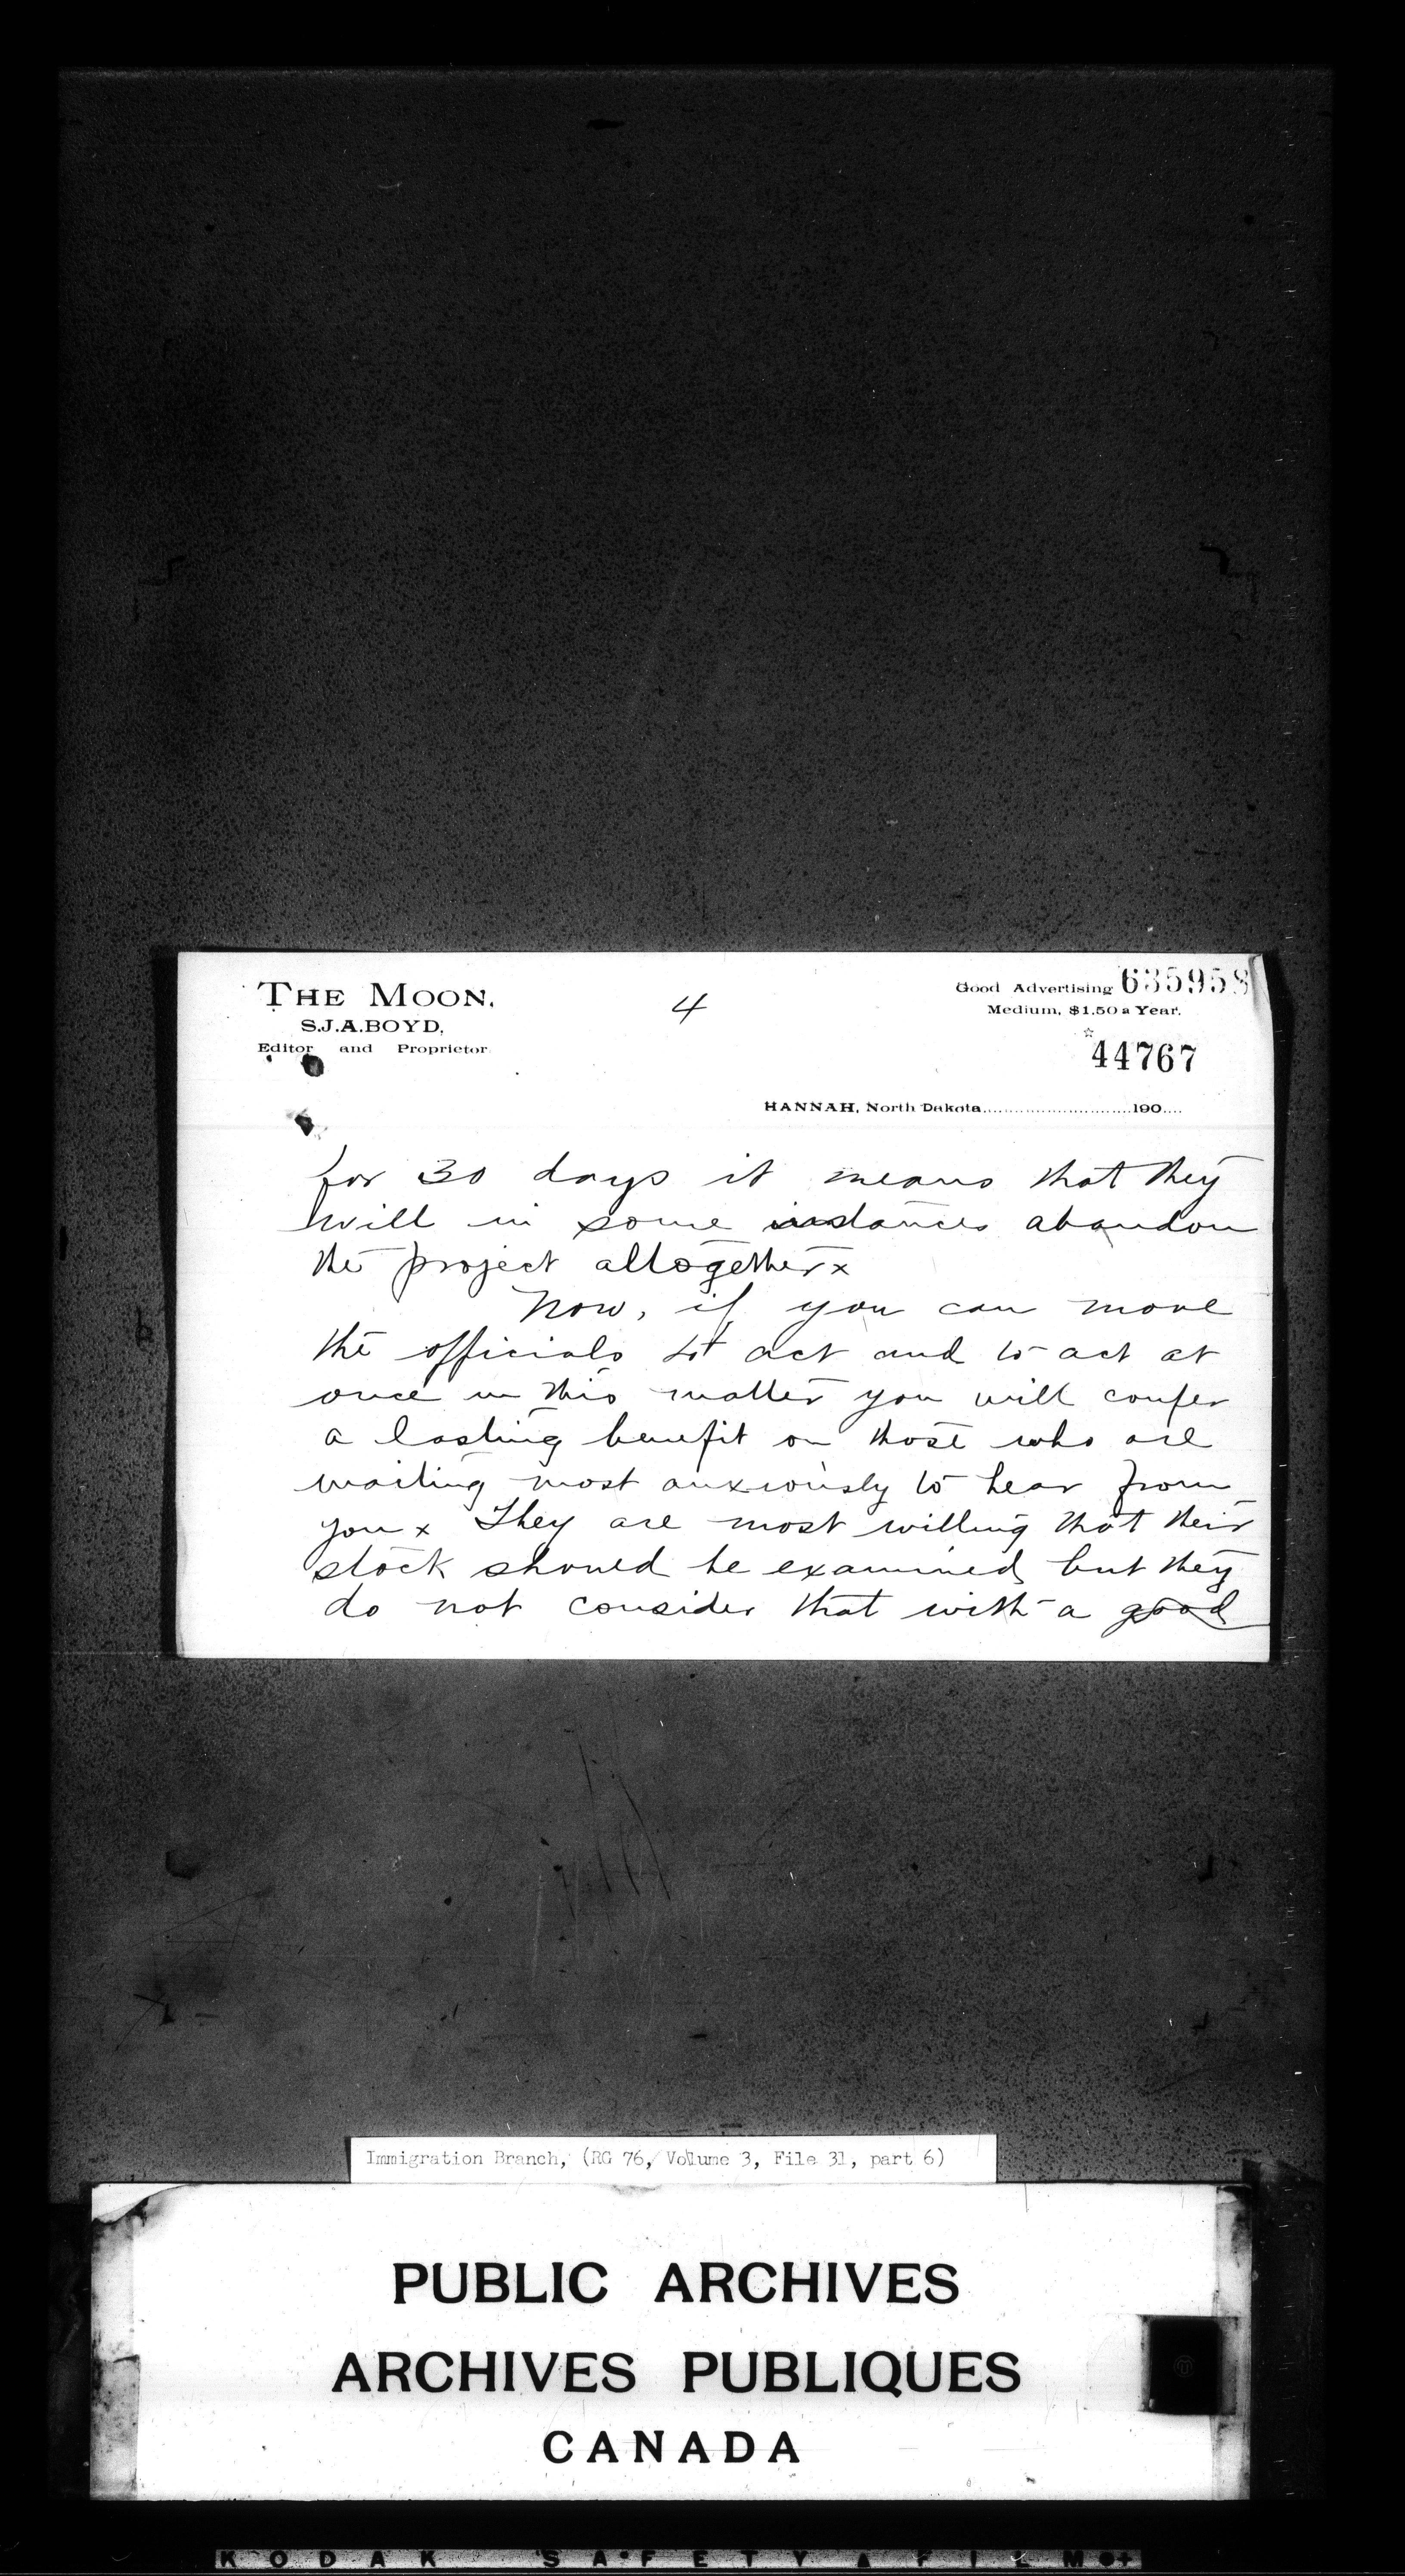 THE MOON,
S.J.A. BOYD,
Editor and Proprietor.
4
Good Advertising 635958
Medium, $1.50 a Year.
44767
HANNAH, North Dakota..............................190....
for 30 days it means that they
will in some instances abandon
the project altogether x
Now, if you can move
the officials to act and to act at
once in this matter you will confer
a lasting benefit on those who are
waiting most anxiously to hear from
you x They are most willing that their
stock should be examined but they
do not consider that with a good
Immigration Branch, (RG 76, Volume 3, File 31, part 6)
PUBLIC ARCHIVES
ARCHIVES PUBLIQUES
CANADA
KODAK SAFETY FILM